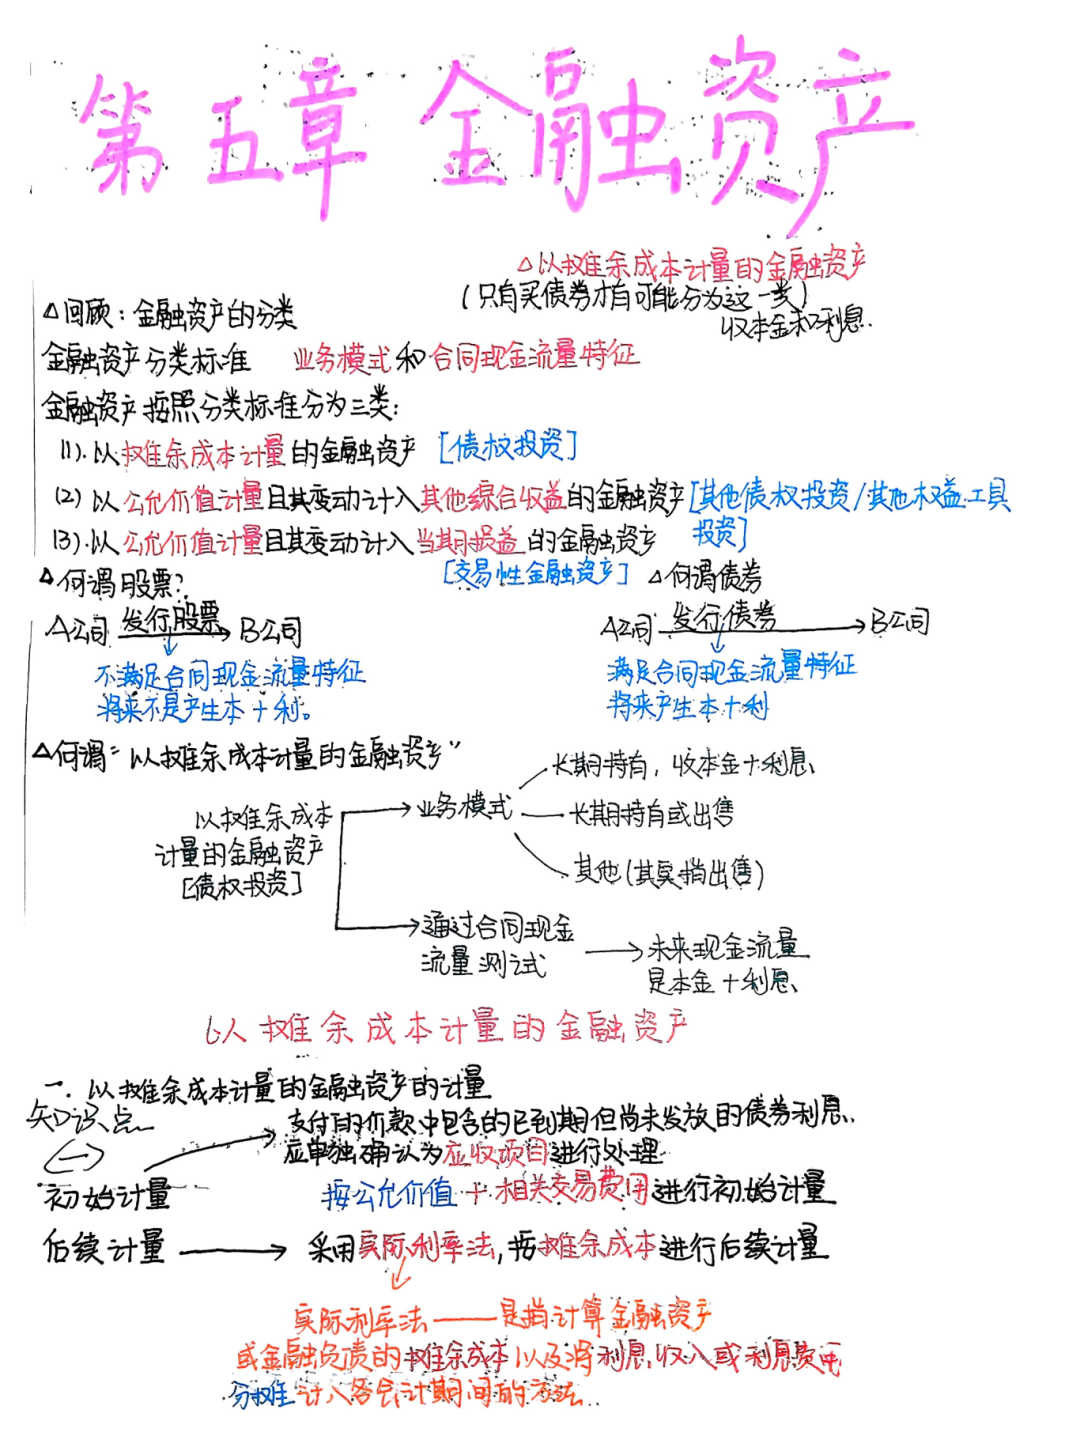 第五章 金融资产
△以摊余成本计量的金融资产
(只有买债券才有可能分为这一类)
收本金和利息.
△回顾:金融资产的分类
金融资产分类标准 业务模式和合同现金流量特征
金融资产按照分类标准分为三类:
(1).以摊余成本计量的金融资产 [债权投资]
(2)以公允价值计量且其变动计入其他综合收益的金融资产[其他债权投资/其他权益工具
投资]
(3).以公允价值计量且其变动计入当期损益的金融资产
[交易性金融资产]
△何谓股票?
A公司 发行股票 B公司
不满足合同现金流量特征
将来不是产生本+利。
△何谓债券
A公司 发行债券 B公司
满足合同现金流量特征
将来产生本+利
△何谓“以摊余成本计量的金融资产”
以摊余成本
计量的金融资产
[债权投资]
业务模式
长期持有,收本金+利息
长期持有或出售
其他(其实指出售)
通过合同现金
流量测试
未来现金流量
是本金+利息
以摊余成本计量的金融资产
一.以摊余成本计量的金融资产的计量
知识点
(一)
支付的价款中包含的已到期但尚未发放的债券利息.
应单独确认为应收项目进行处理
初始计量 按公允价值+相关交易费用进行初始计量
后续计量 采用实际利率法,按摊余成本进行后续计量
实际利率法——是指计算金融资产
或金融负债的摊余成本以及将利息收入或利息费用
分摊计入各会计期间的方法..